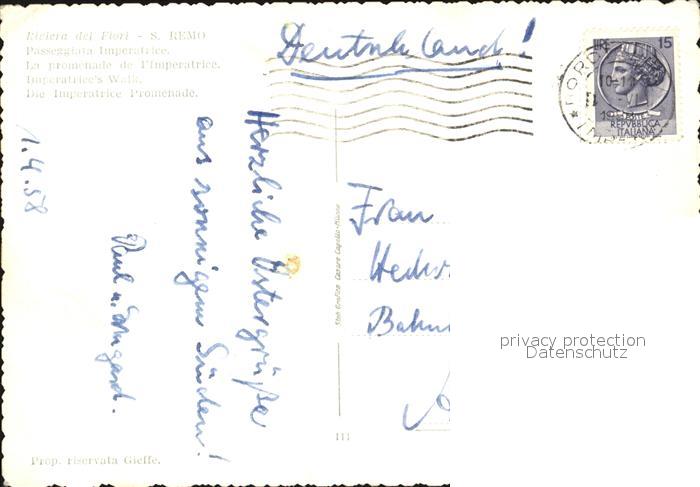 Riviera dei Fiori - S. REMO
Passeggiata Imperatrice.
La promenade de l'Imperatrice.
Imperatrice's Walk.
Die Imperatrice Promenade.
Deutschland!
15
REPVBBLICA
ITALIANA
1.4.58
Herzliche Ostergrüße
aus sonnigem Süden!
u. Irmgard.
Frau
Hedw
Bahn
privacy protection
Datenschutz
111
Prop. riservata Gieffe.